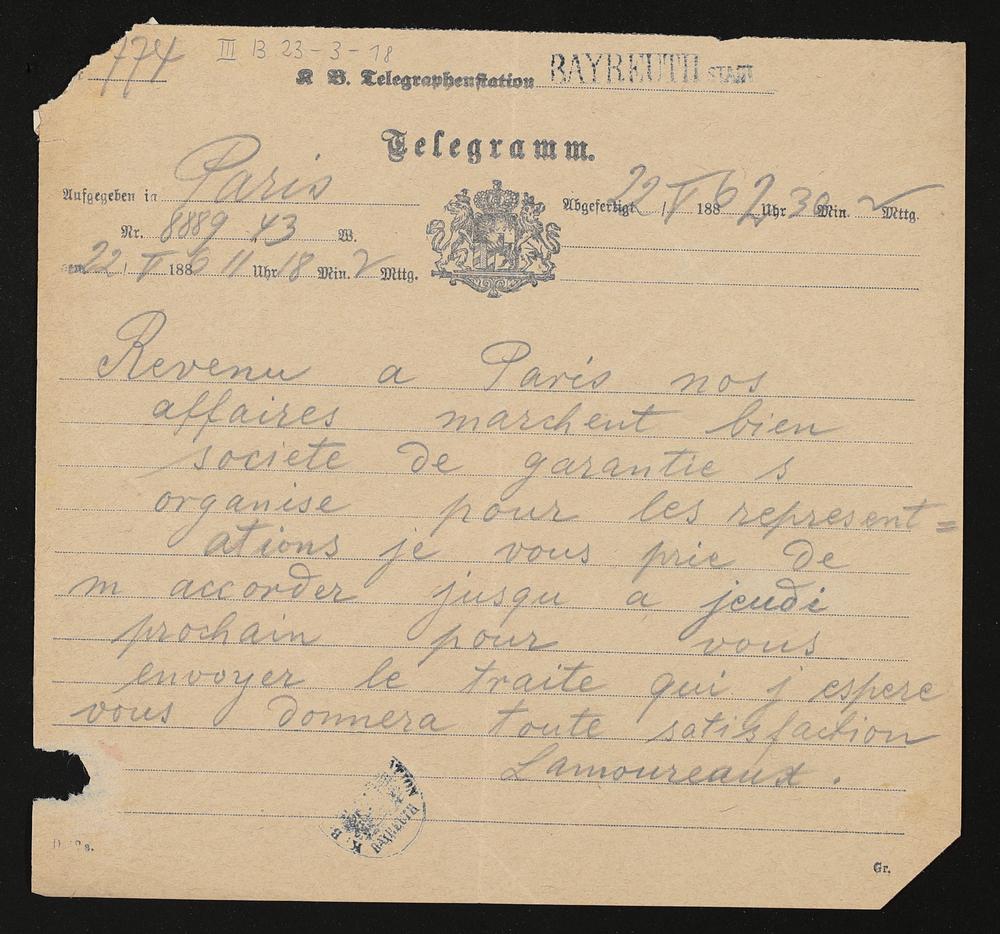 774 III B 23-3-18
K. B. Telegraphenstation BAYREUTH STADT
Telegramm.
Aufgegeben in Paris
Nr. 8889 43 W.
22/V 1886 11 Uhr 18 Min. V Mttg.
Abgefertigt 22/V 1886 2 Uhr 30 Min. Mttg.
Revenu a Paris nos
affaires marchent bien
societe de garantie s
organise pour les represent=
ations je vous prie de
m accorder jusqu a jeudi
prochain pour vous
envoyer le traite qui j espere
vous donnera toute satisfaction
Lamoureaux.
K. B. STATION BAYREUTH
Gr.